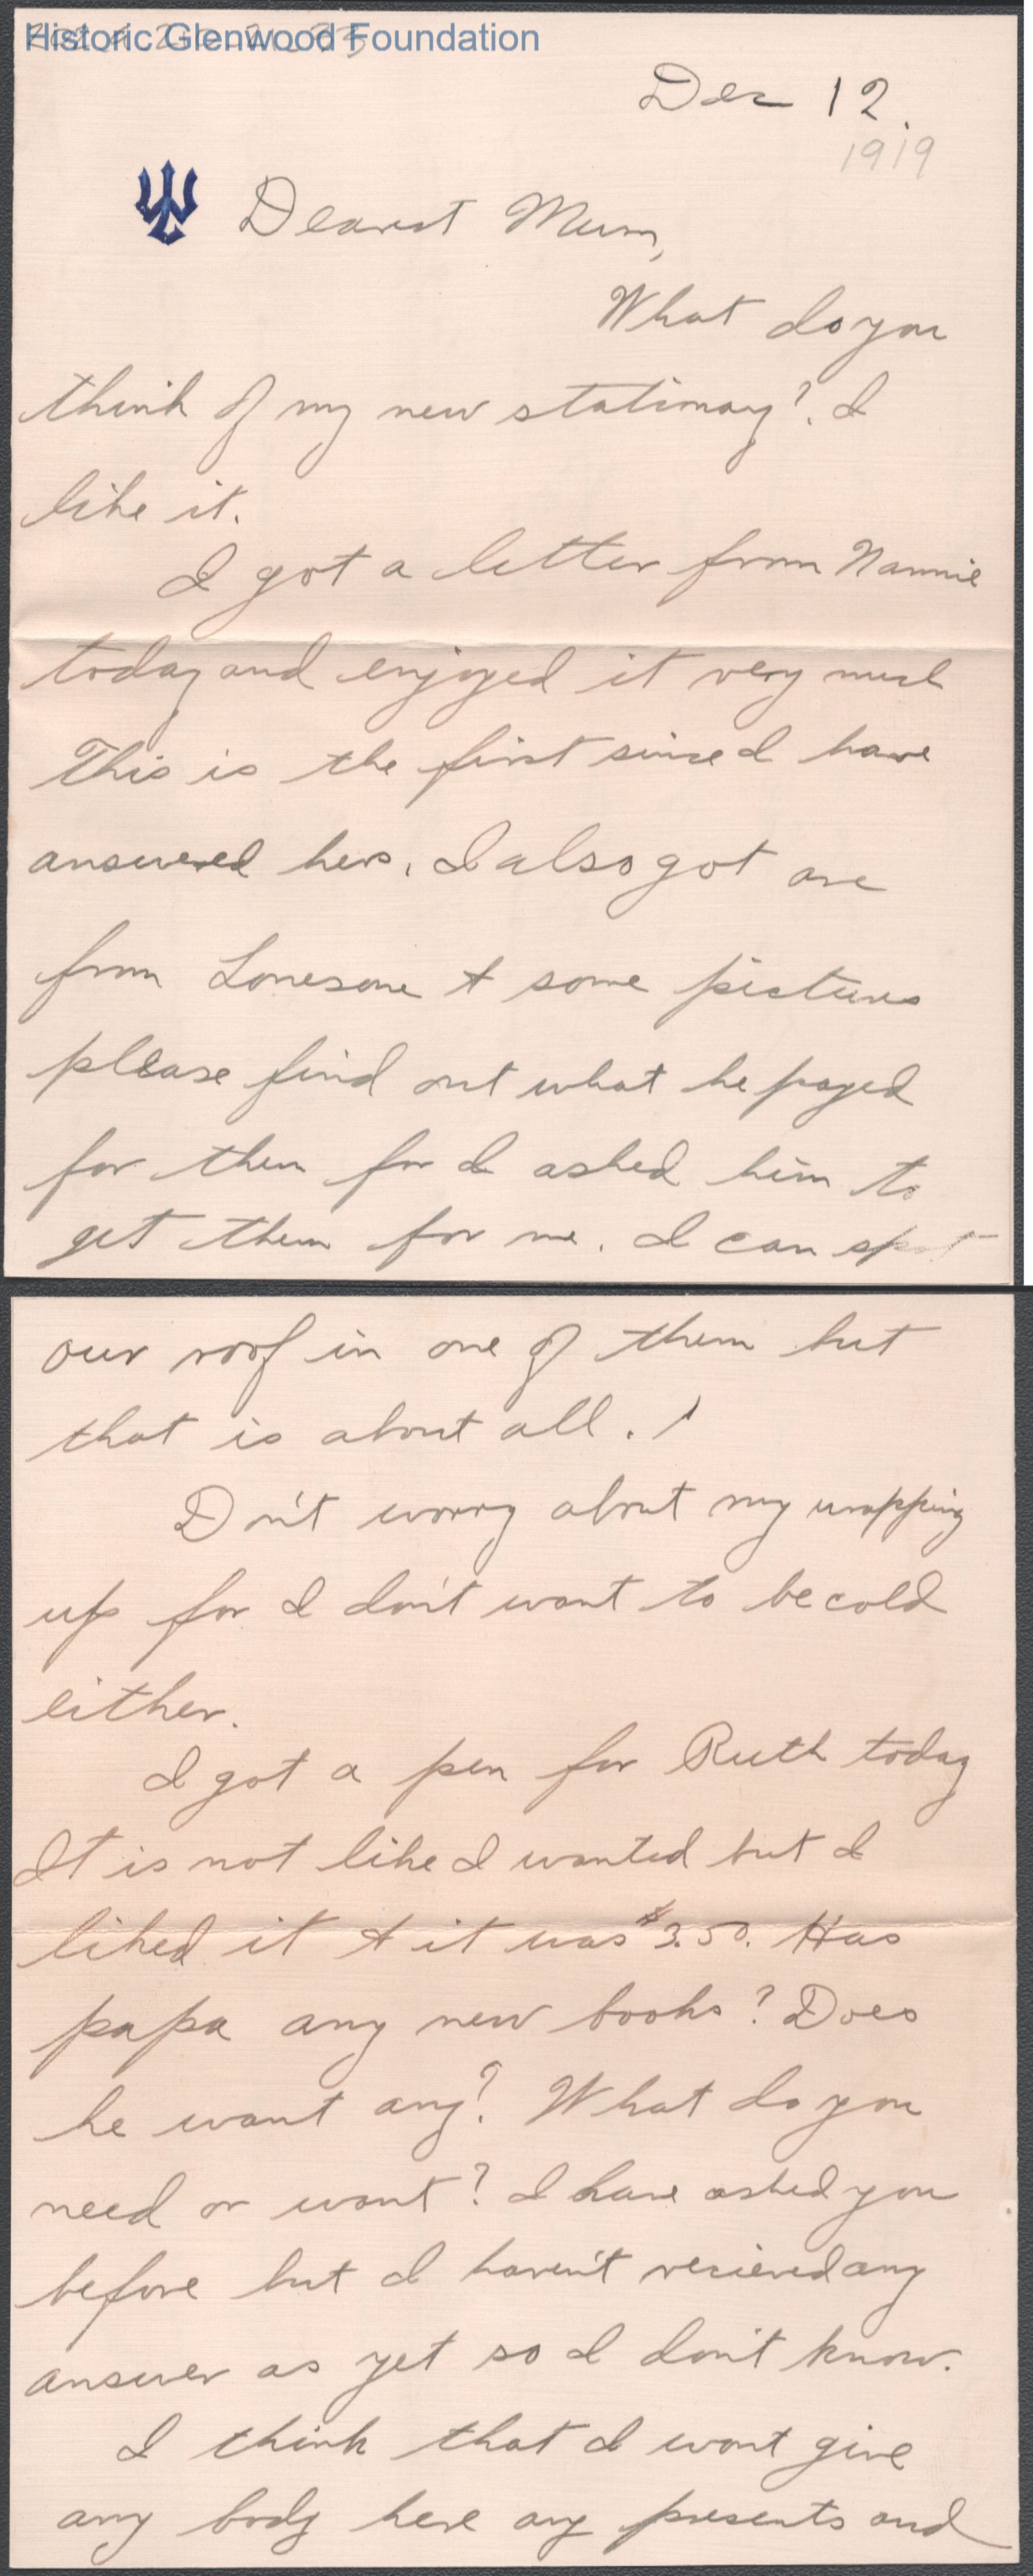 Historic Glenwood Foundation
Dec 12.
1919
Dearest Mum,
What do you
think of my new stationary? I
like it.
I got a letter from Nannie
today and enjoyed it very much
This is the first since I have
answered hers. I also got one
from Lonesome & some pictures
please find out what he payed
for them for I asked him to
get them for me. I can spot
our roof in one of them but
that is about all.
Don't worry about my wrapping
up for I don't want to be cold
either.
I got a pen for Ruth today
It is not like I wanted but I
liked it & it was $3.50. Has
papa any new books? Does
he want any? What do you
need or want? I have asked you
before but I haven't recieved any
answer as yet so I don't know.
I think that I wont give
any body here any presents and